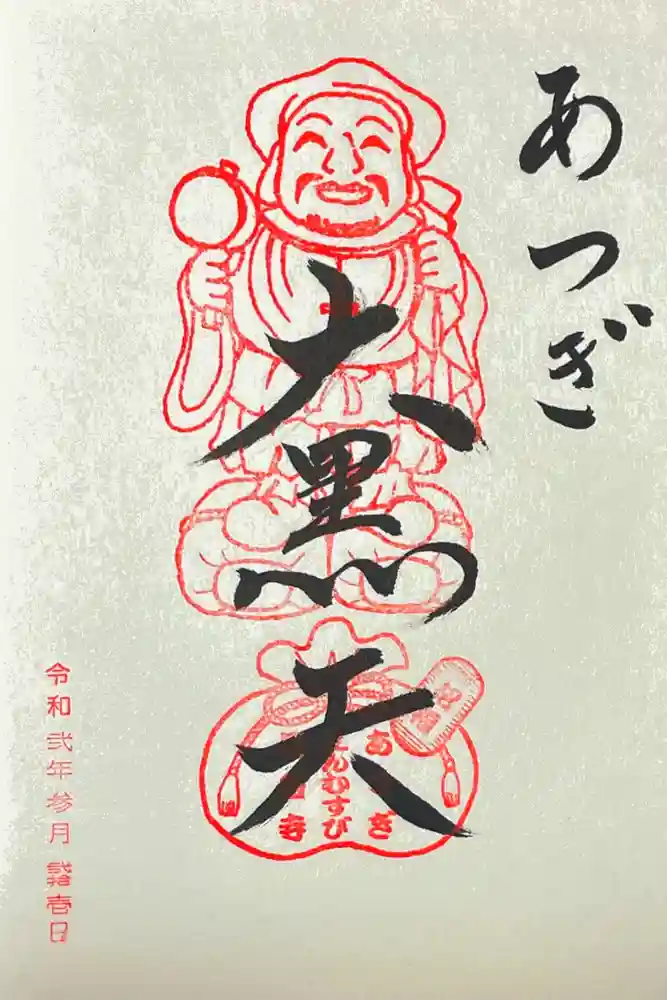 あつぎ
大黒天
あ ぎ
えんむすび
寺
令和弐年参月弐拾壱日